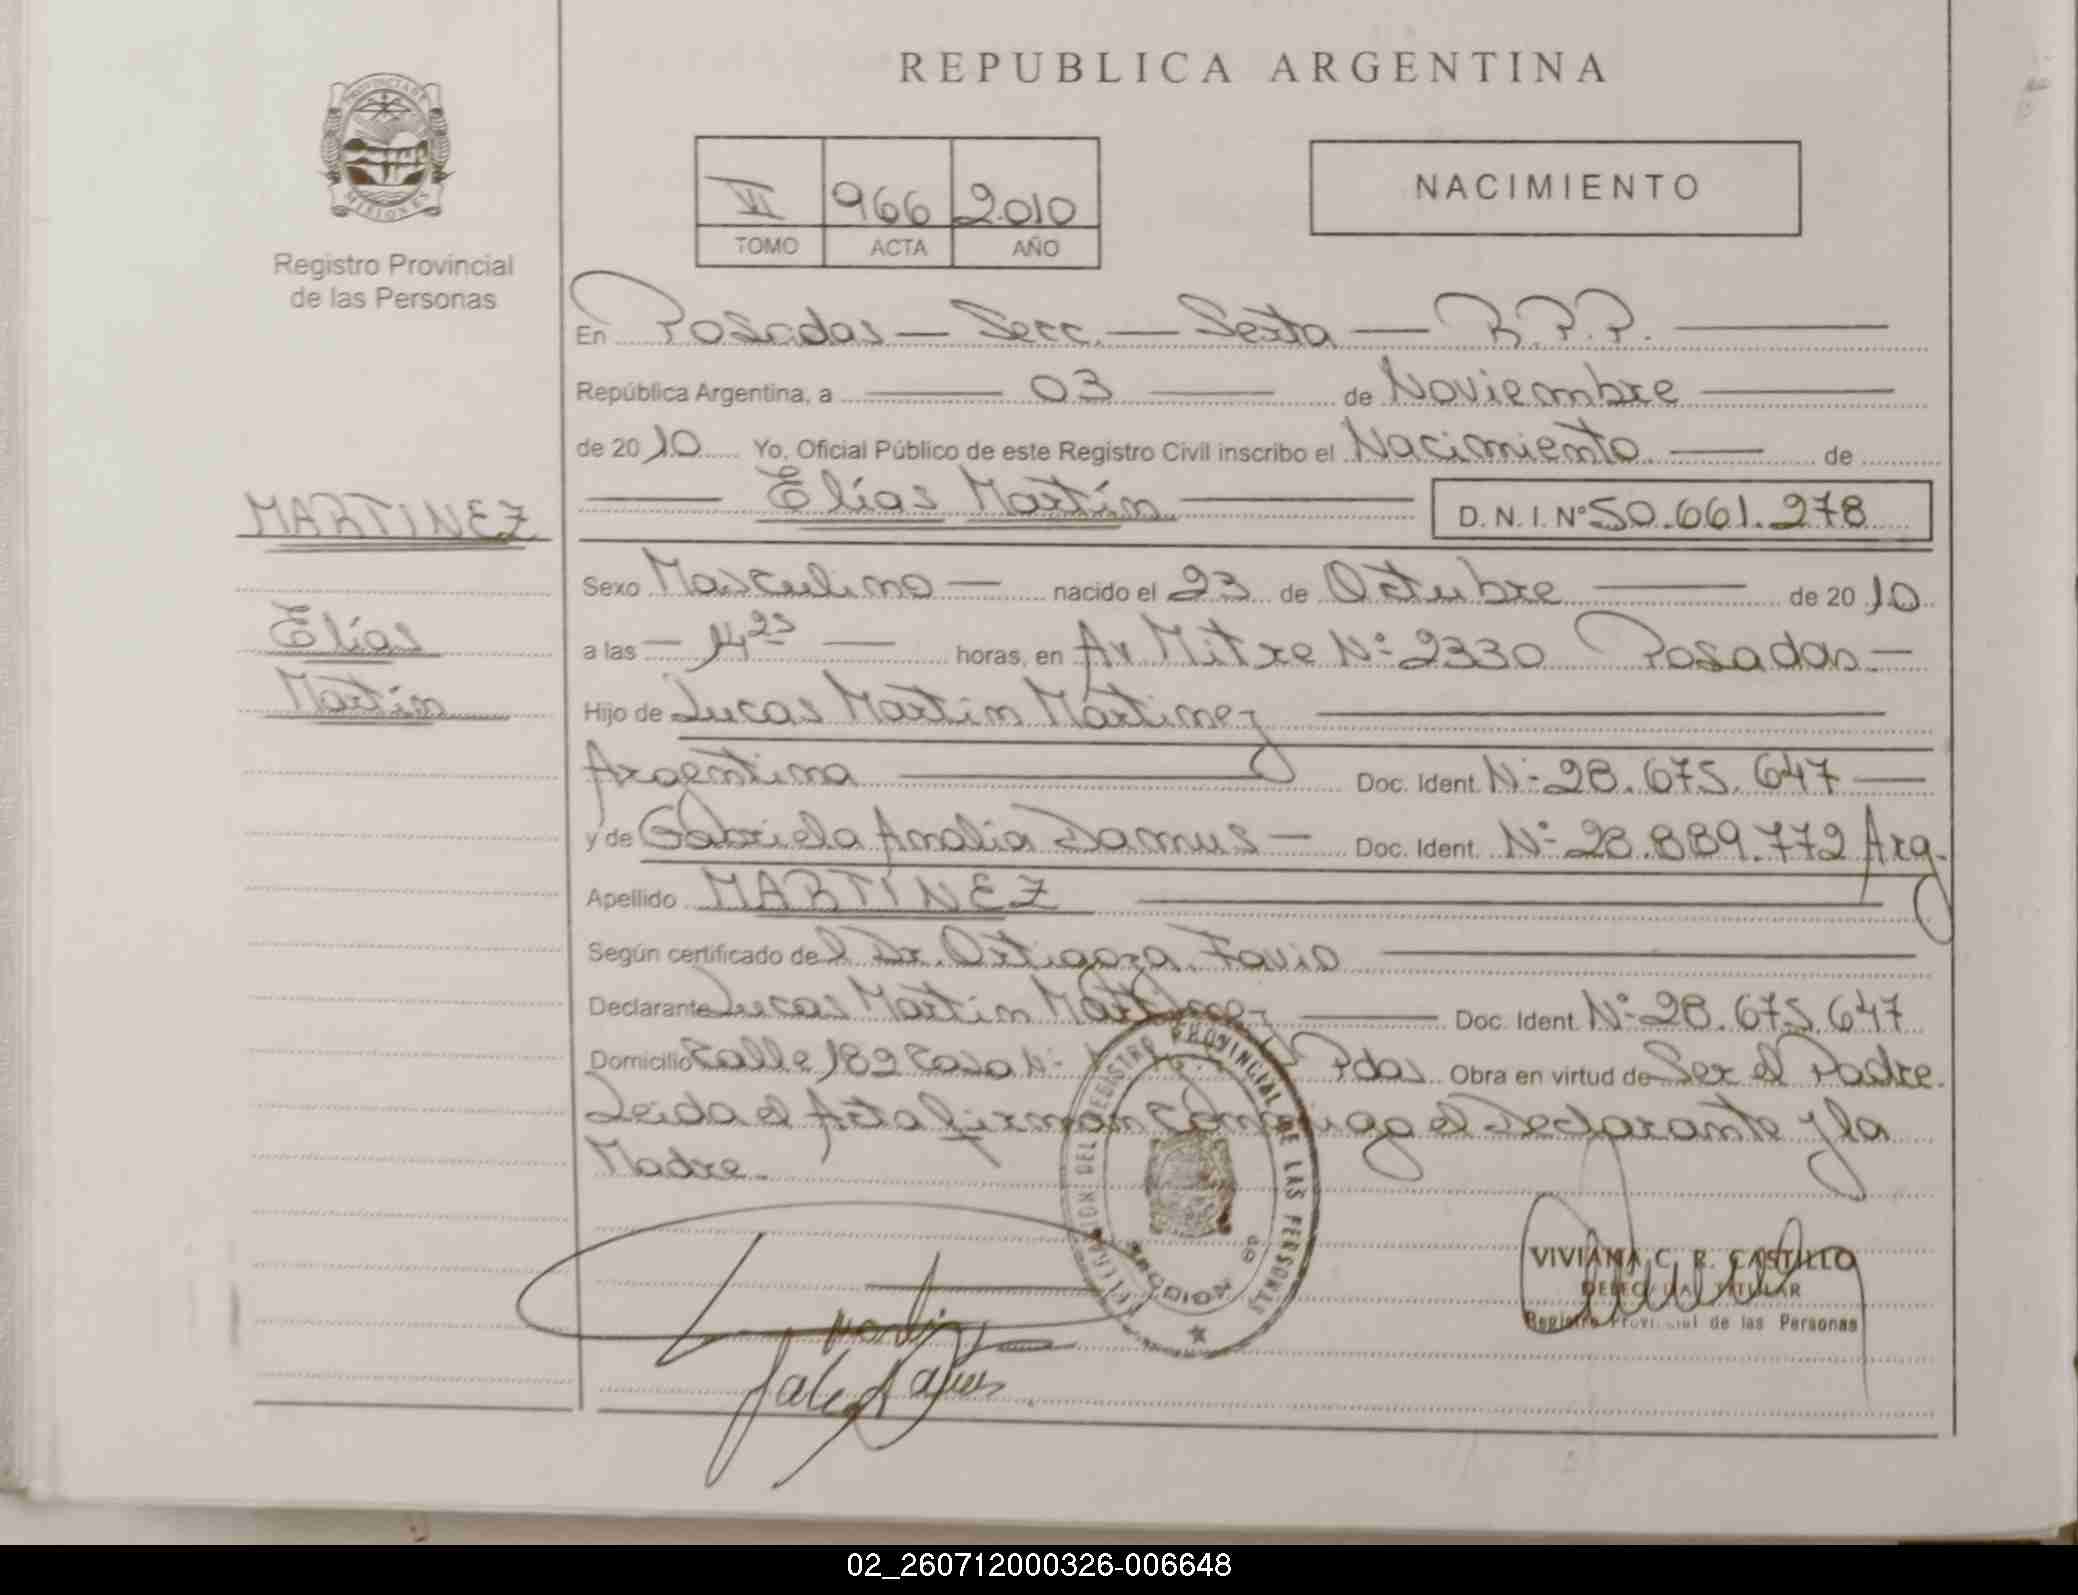 REPUBLICA ARGENTINA
PROVINCIA DE
MISIONES
Registro Provincial
de las Personas
VI 966 2010
TOMO ACTA AÑO
NACIMIENTO
En Posadas — Secc. — Sexta — R.P.P.
República Argentina, a 03 de Noviembre
de 2010 Yo, Oficial Público de este Registro Civil inscribo el Nacimiento de
Elías Martín D.N.I. Nº 50.661.278
MARTINEZ
Elías
Martín
Sexo Masculino — nacido el 23 de Octubre de 2010
a las — 14 23 — horas, en Av Mitre Nº 2330 Posadas —
Hijo de Lucas Martin Martinez
Argentina Doc. Ident. Nº 28.675.647
y de Gabriela Amalia — Doc. Ident. Nº 28.889.772 Arg.
Apellido MARTINEZ
Según certificado del Dr. Ortigoza Favio
Declarante Lucas Martin Martinez Doc. Ident. Nº 28.675.647
Domicilio Calle 182 Casa Nº Pdas. Obra en virtud de Ser el Padre.
Leida el Acta firman conmigo el Declarante y la
Madre.
DELEGACION DEL REGISTRO PROVINCIAL DE LAS PERSONAS
SECCION 6º
VIVIANA C. R. CASTILLO
DELEGADA TITULAR
Registro Provincial de las Personas
02_260712000326-006648